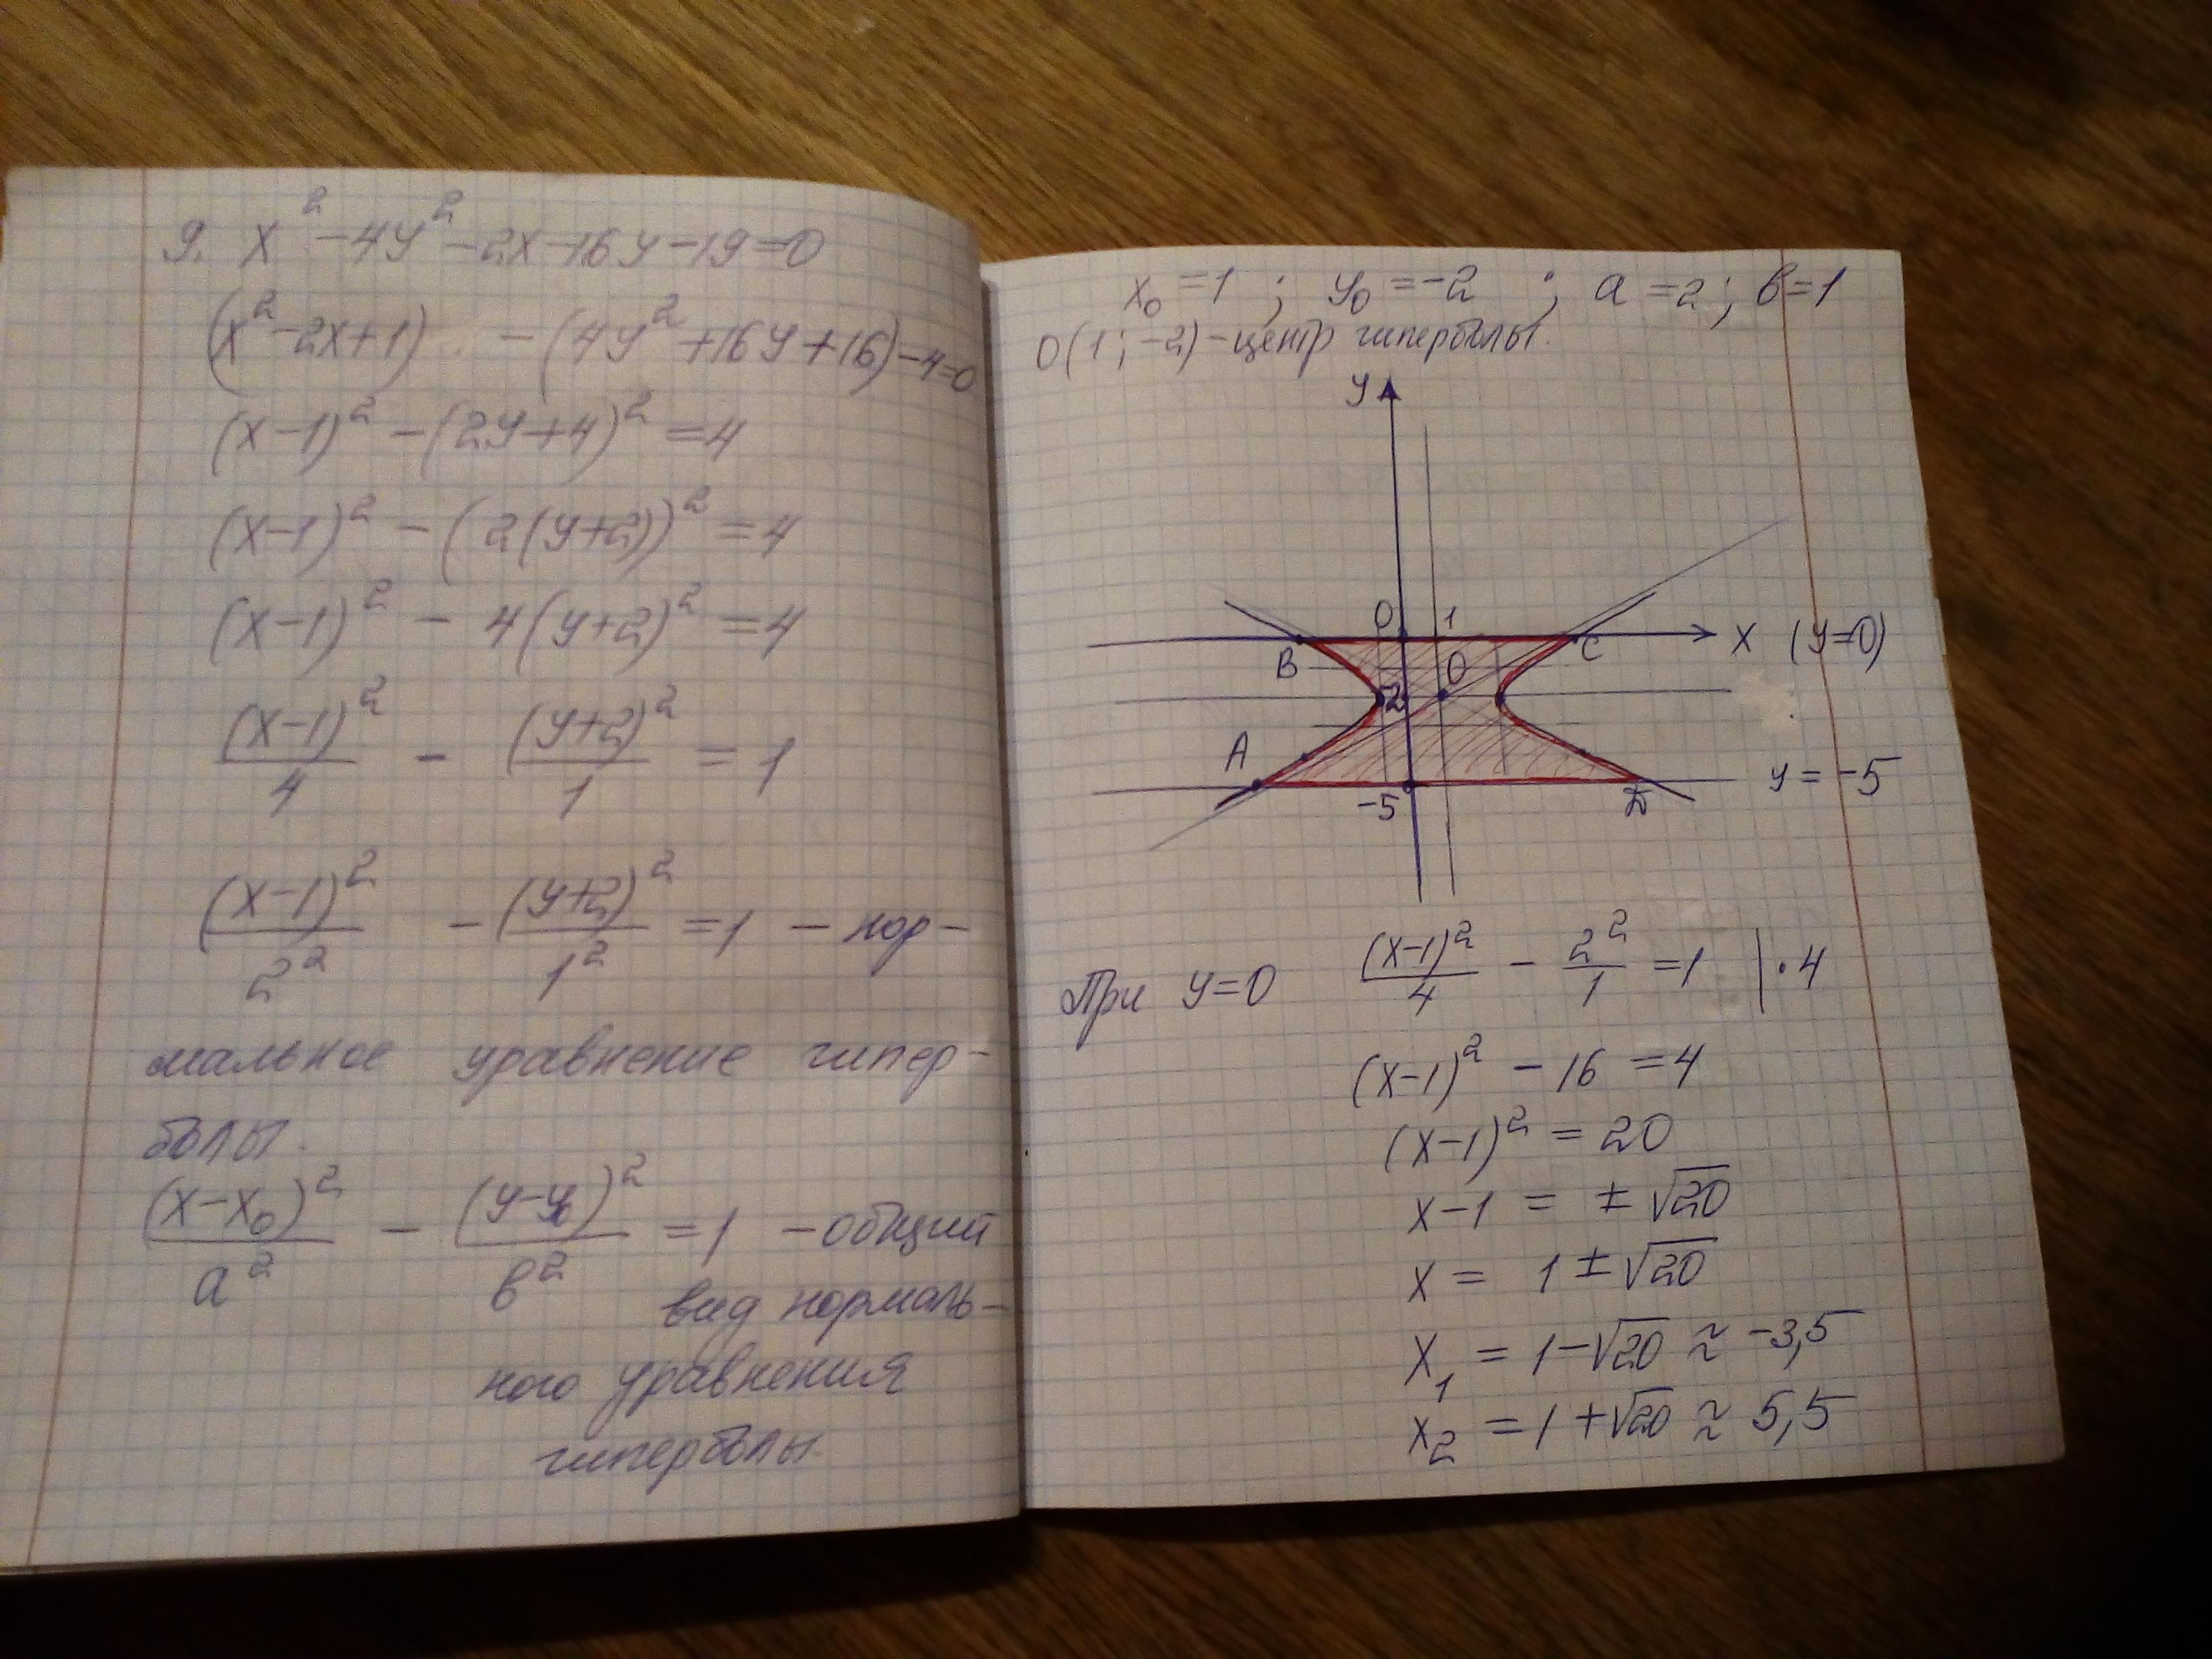 9. x² - 4y² - 2x - 16y - 19 = 0
(x² - 2x + 1) .. - (4y² + 16y + 16) - 4 = 0
(x-1)² - (2y+4)² = 4
(x-1)² - (2(y+2))² = 4
(x-1)² - 4(y+2)² = 4
(x-1)²/4 - (y+2)²/1 = 1
(x-1)²/2² - (y+2)²/1² = 1 - нор-
мальное уравнение гипер-
болы.
(x-x₀)²/a² - (y-y₀)²/в² = 1 - общий
вид нормаль-
ного уравнения
гиперболы.
x₀ = 1 ; y₀ = -2 ; a = 2 ; в = 1
О(1; -2) - центр гиперболы.
y
0 1 x (y=0)
B O C
-2
A y = -5
-5 D
При y=0 (x-1)²/4 - 2²/1 = 1 | · 4
(x-1)² - 16 = 4
(x-1)² = 20
x-1 = ± √20
x = 1 ± √20
x₁ = 1 - √20 ≈ -3,5
x₂ = 1 + √20 ≈ 5,5